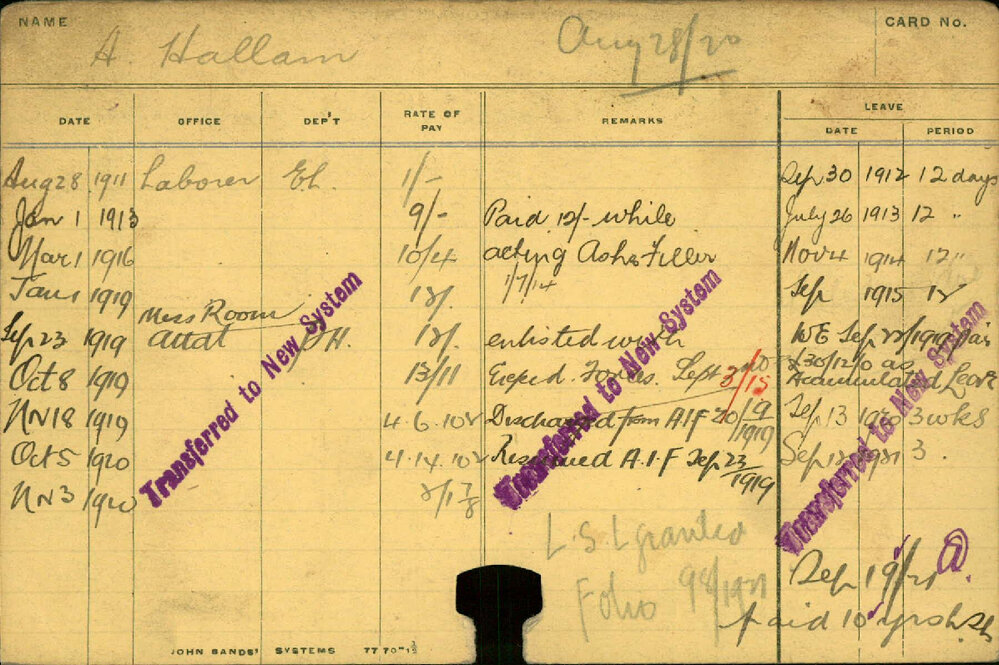 NAME
A. Hallam
Aug 28/20
CARD No.
DATE OFFICE DEP'T RATE OF PAY REMARKS LEAVE
DATE PERIOD
Aug 28 1911 Laborer El. 1/- Sep 30 1912 12 days
Jan 1 1913 9/- Paid 12/- while July 26 1913 12 "
Mar 1 1916 10/4 acting Ash Filler Nov 4 1914 12 "
1/7/14
Jan 1 1919 12/. Sep 1915 12
Mess Room
Sep 23 1919 Attdt 12/. enlisted with WE Sep
£30/12/0 as
Oct 8 1919 13/11 Exped. Forces. Sept 3/15 Accumulated Leave
Nov 18 1919 4.6.10½ Discharged from A.I.F 20/9/1919 Sep 13 1920 3 wks
Oct 5 1920 4.14.10½ Resumed A.I.F Sep 23/1919 Sep 1921 3.
Nov 3 1920
Transferred to New System
Transferred to New System
Transferred to New System
L.S.L granted
Folio 98/1921
Sep 19/21
paid 10 yrs
JOHN SANDS' SYSTEMS 7770-1½